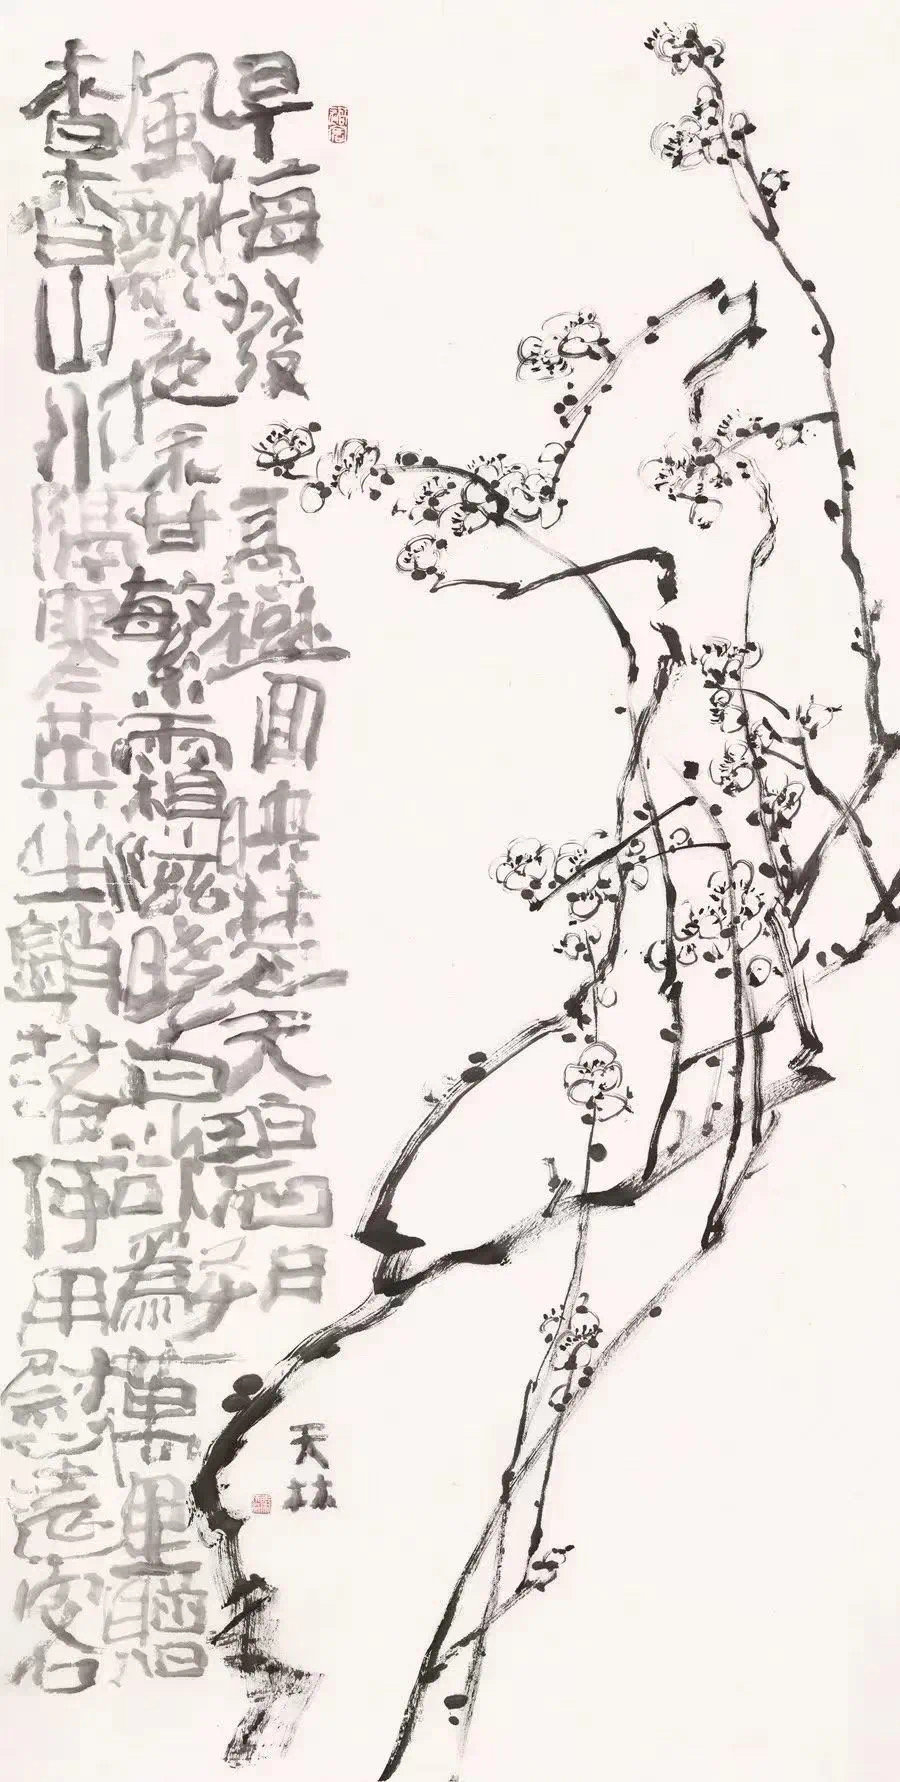 早梅發高樹迥映楚天碧朔
風飄夜香繁霜滋曉白欲為萬里贈
杳杳山水隔寒英坐銷落何用慰遠客
天林